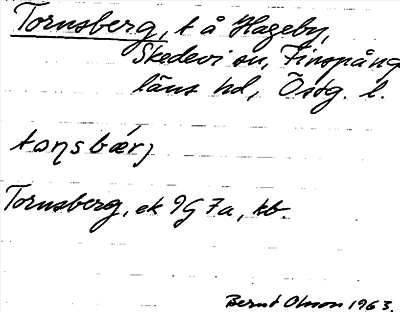 Tornsberg, t å Hageby,
Skedevi sn, Finspång
läns hd, Östg. l.
tonsbærj
Tornsberg, ek 9G 7a, kb.
Bernt Olsson 1963.